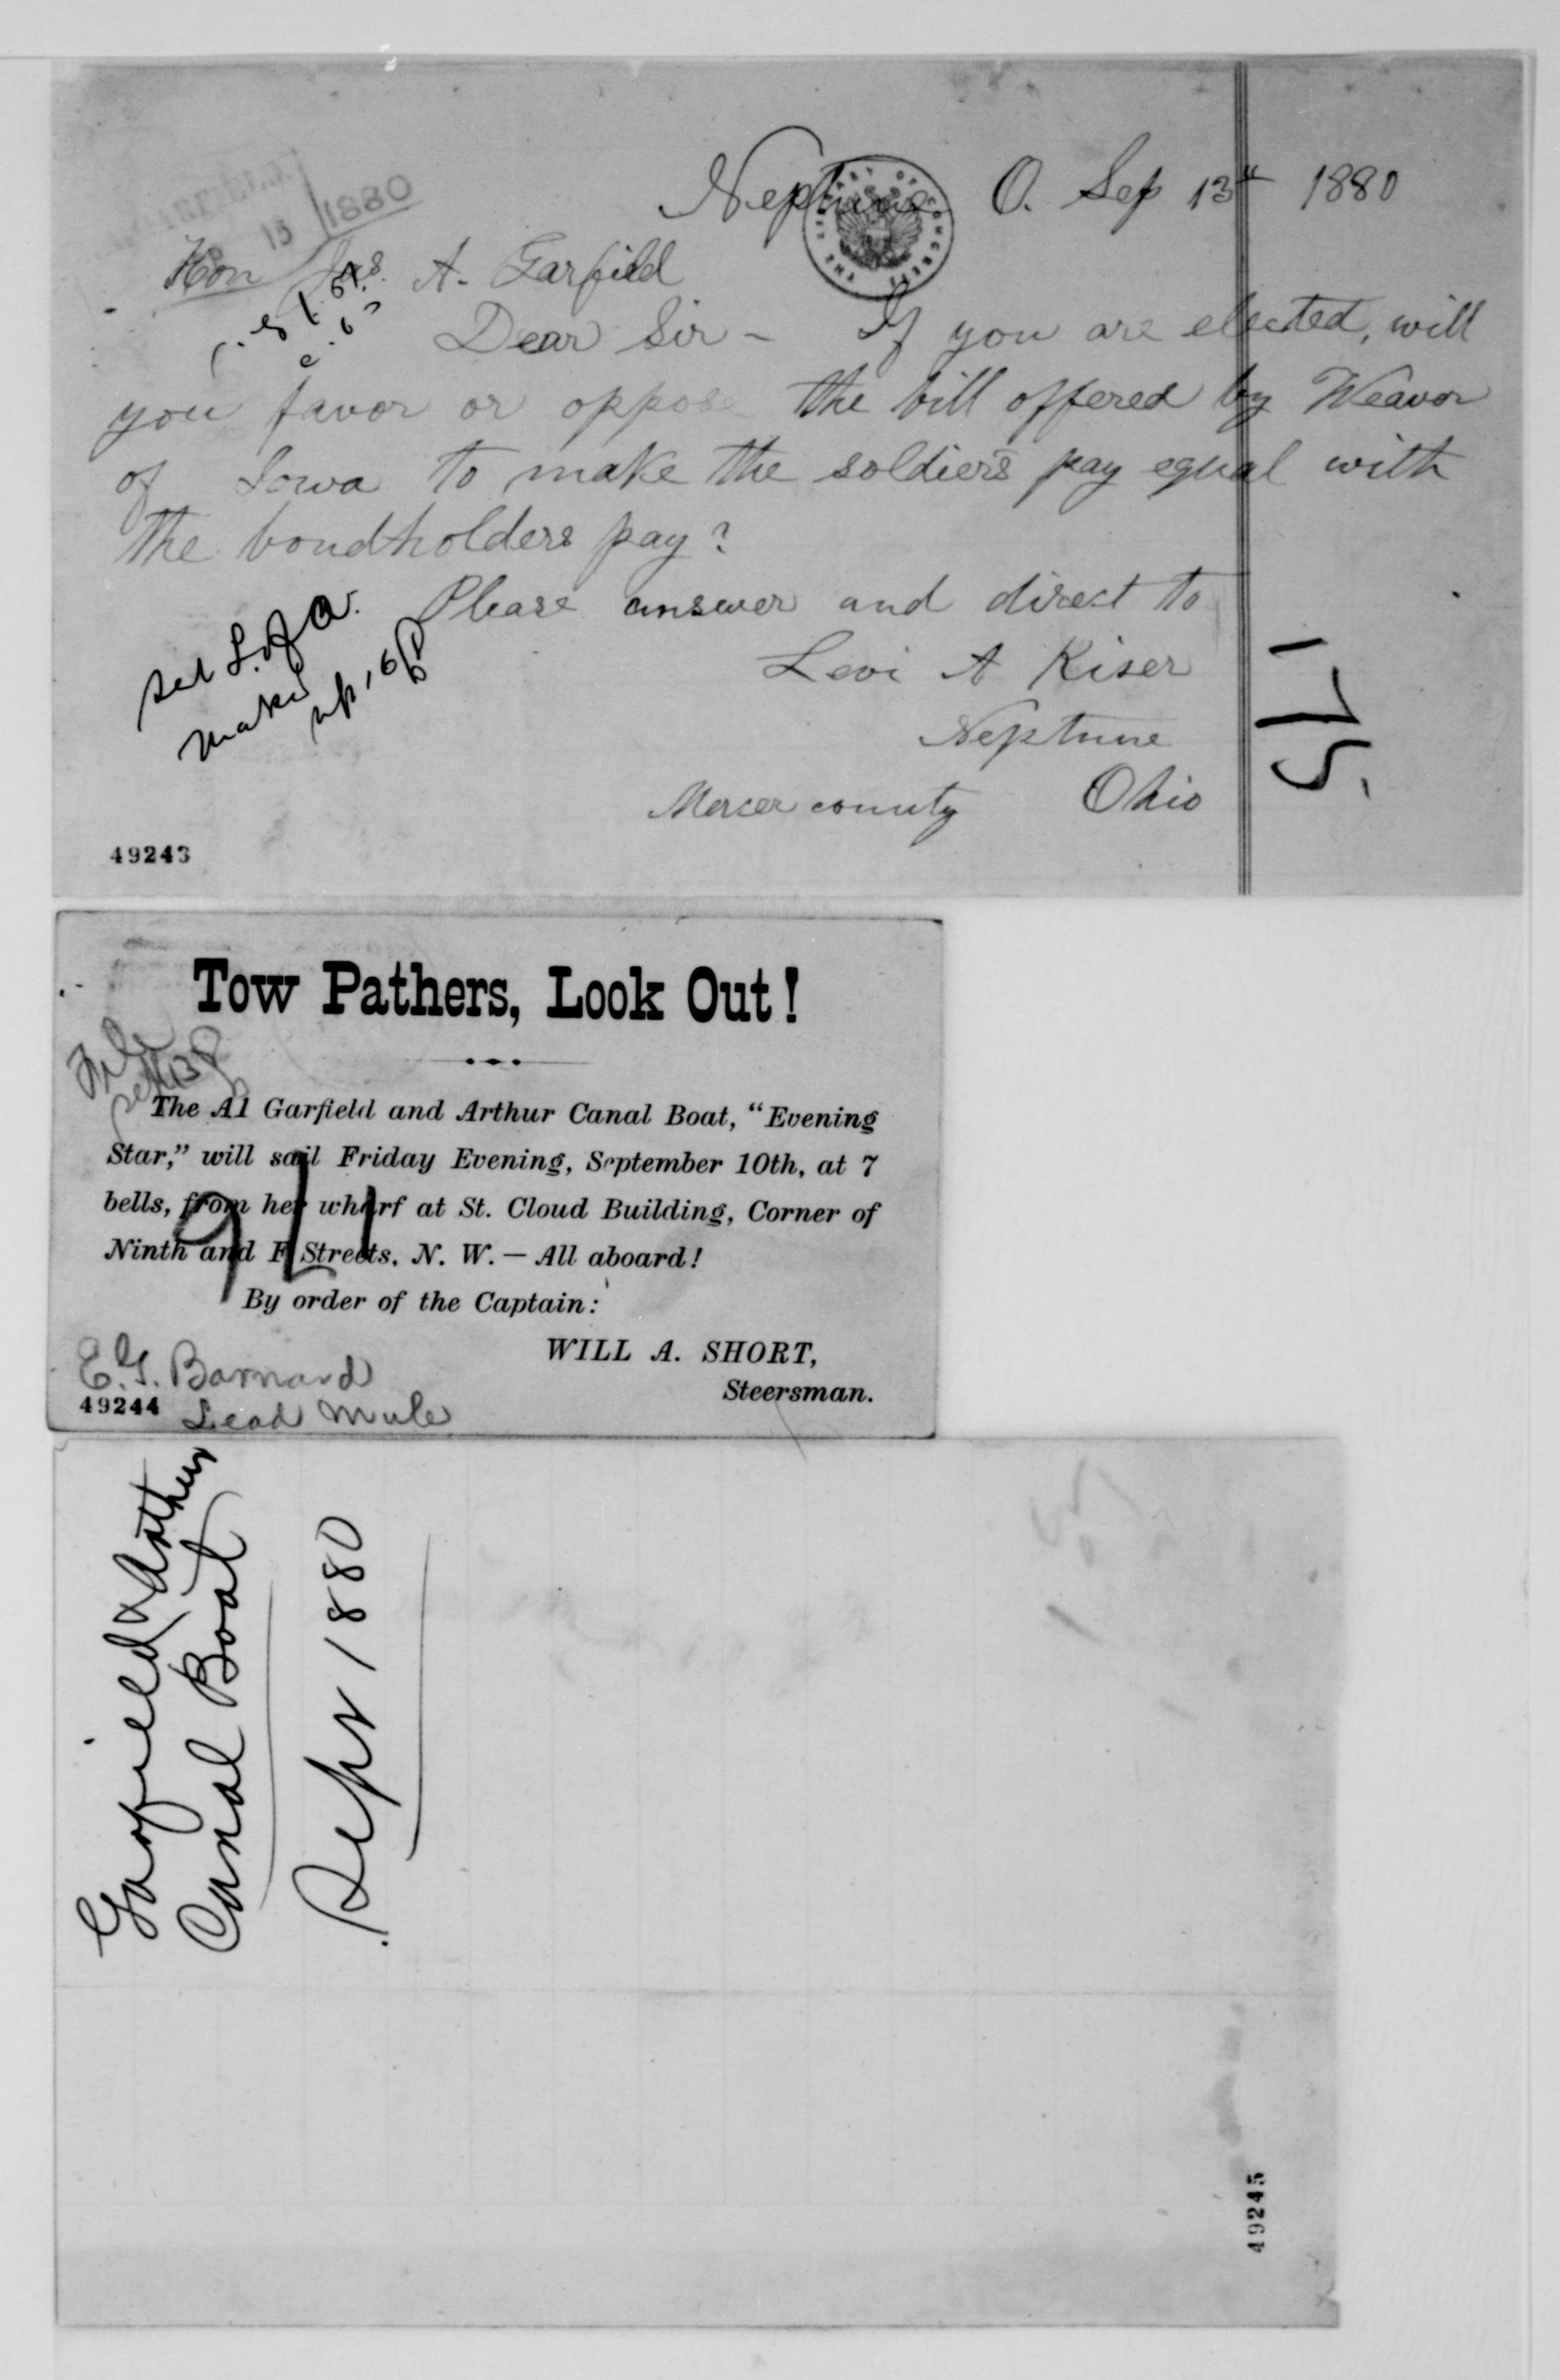 Neptune O. Sep 13th 1880
1880
15
THE LIBRARY OF CONGRESS
Hon Jas. A. Garfield
Dear Sir - If you are elected, will
you favor or oppose the bill offered by Weavor
of Iowa to make the soldiers pay equal with
the bondholders pay?
Please answer and direct to
Levi A Kiser
Neptune
Mercer county Ohio
175
49243
Tow Pathers, Look Out!
File
The A1 Garfield and Arthur Canal Boat, "Evening
Star," will sail Friday Evening, September 10th, at 7
bells, from her wharf at St. Cloud Building, Corner of
Ninth and F Streets, N. W. — All aboard!
By order of the Captain:
WILL A. SHORT,
Steersman.
E. G. Barnard
Lead Mule
49244
Garfield & Arthur
Canal Boat
Sept 1880
49245